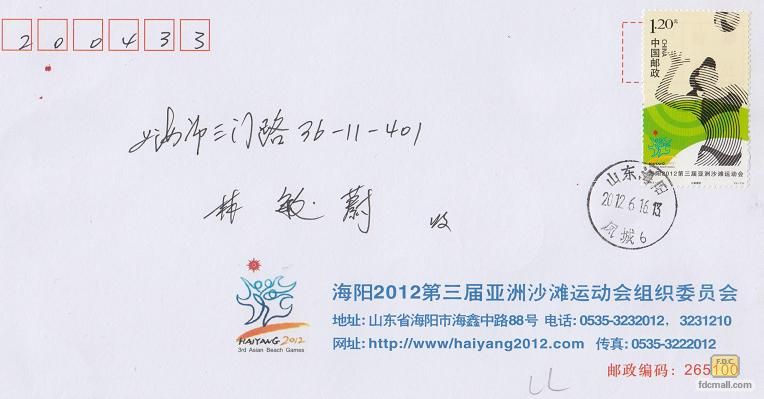 200433
1.20元
CHINA
中国邮政
海阳2012第三届亚洲沙滩运动会
山东.海阳
2012.6.16.13
凤城6
上海市三门路36-11-401
林敏蔚 收
HAIYANG2012
3rd Asian Beach Games
海阳2012第三届亚洲沙滩运动会组织委员会
地址: 山东省海阳市海鑫中路88号 电话: 0535-3232012, 3231210
网址: http://www/haiyang2012.com 传真: 0535-3222012
邮政编码: 265100
F.D.C.
fdcmall.com